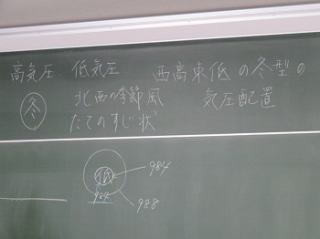 高気圧 低気圧 西高東低の冬型の
冬 北西の季節風 気圧配置
たてのすじ状
低 984
984 988